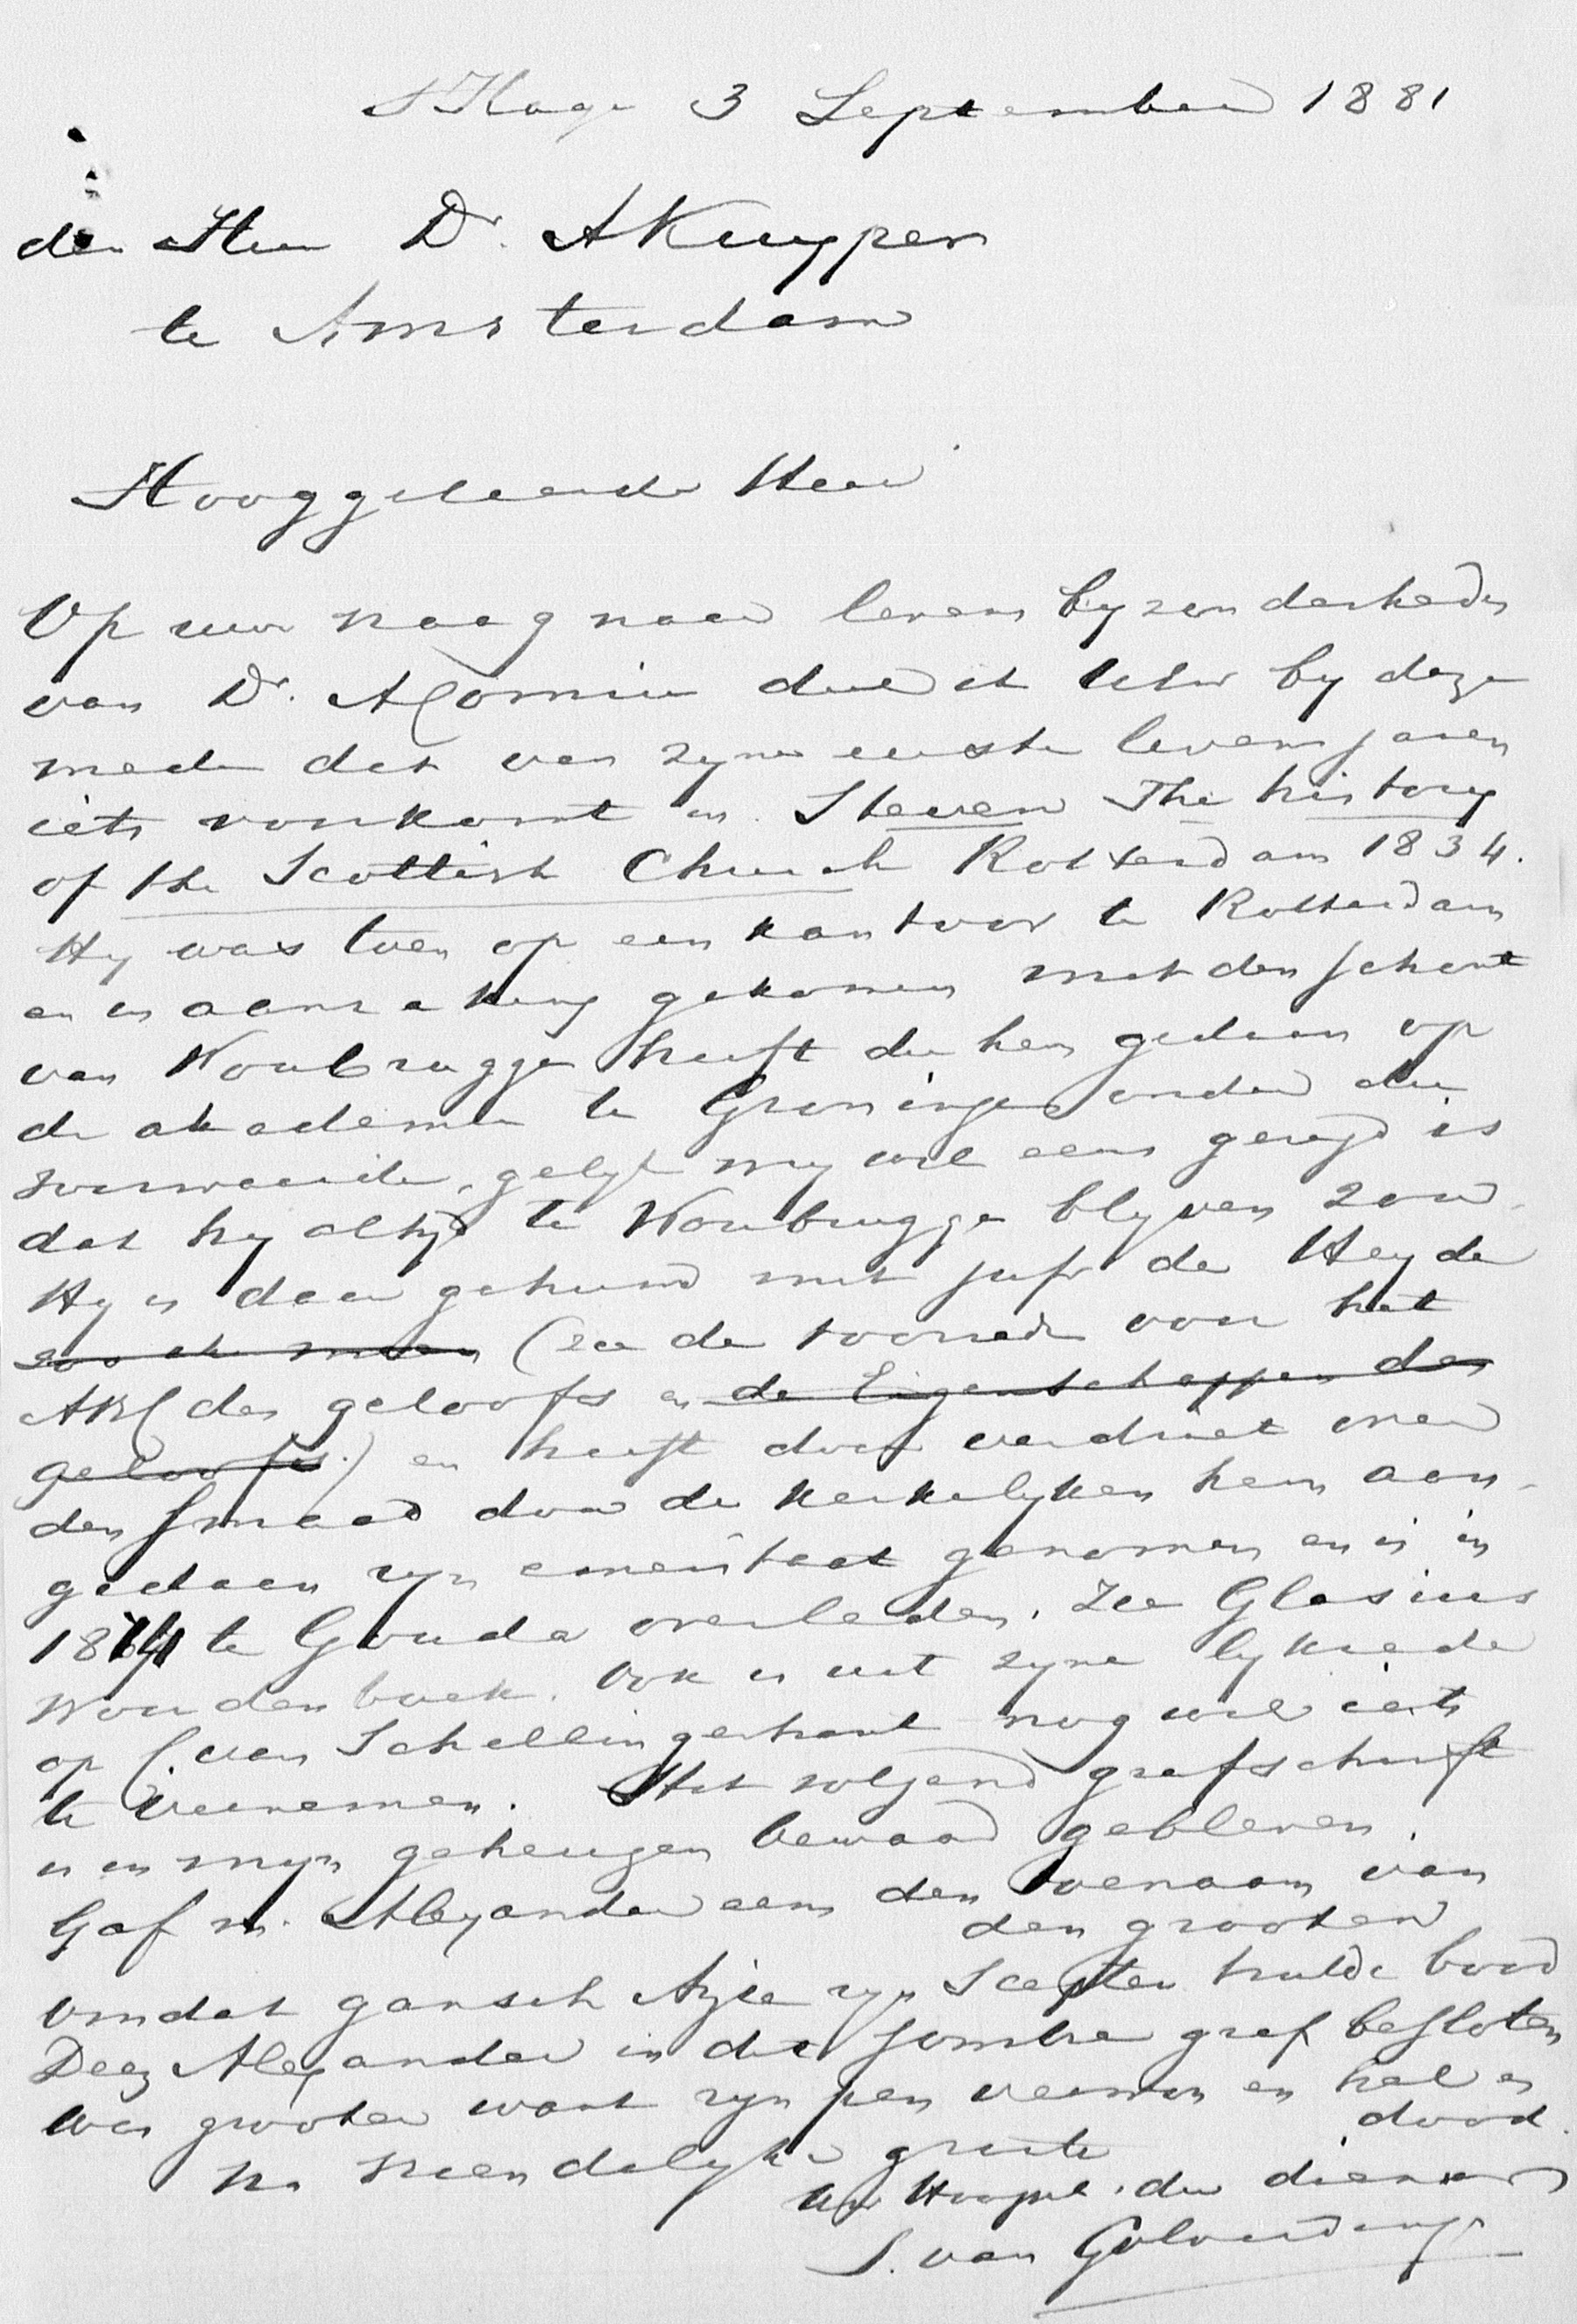 s'Hage 3 September 1881
den Heer Dr. A Kuyper
te Amsterdam
Hooggeleerde Heer
Op uw vraag naar levens byzonderheden
van Dr. A Comrie deel ik UEw by deze
mede dat van zyne eerste levensjaren
iets voorkomt in Steven The history
of the Scottish Church Rotterdam 1834.
Hy was toen op een kantoor te Rotterdam
en in aanraking gekomen met den schout
van Woubrugge heeft die hem gedaan op
de akademie te Groningen onder die
voorwaarde, gelyk my wel eens gezegd is
dat hy altyd te Woubrugge blyven zou
Hy is daar gehuwd met jufr de Heyde
(zie de voorrede voor het
ABC des geloofs en de Eigenschappen des
geloofs.) en heeft door verdriet over
den smaad door de kerkelyken hem aan-
gedaan zyn emeritaat genomen en is in
te Gouda overleden. Zie Glasius
Woordenboek. Ook is uit zyne lykrede
op C. van Schellingerhout nog wel iets
te vernemen. Het volgend grafschrift
is in myn geheugen bewaard gebleven.
Gaf m. Alexander eens den toenaam van
den grooten
Omdat gansch Azie zyn Scepter hulde bood
Deez Alexander in dit somber graf besloten
Was grooter want zyn pen verwon en hel en
dood.
Na vriendelyke groete
Uw Hooggel. dw dienaar
S. van Golverdinge